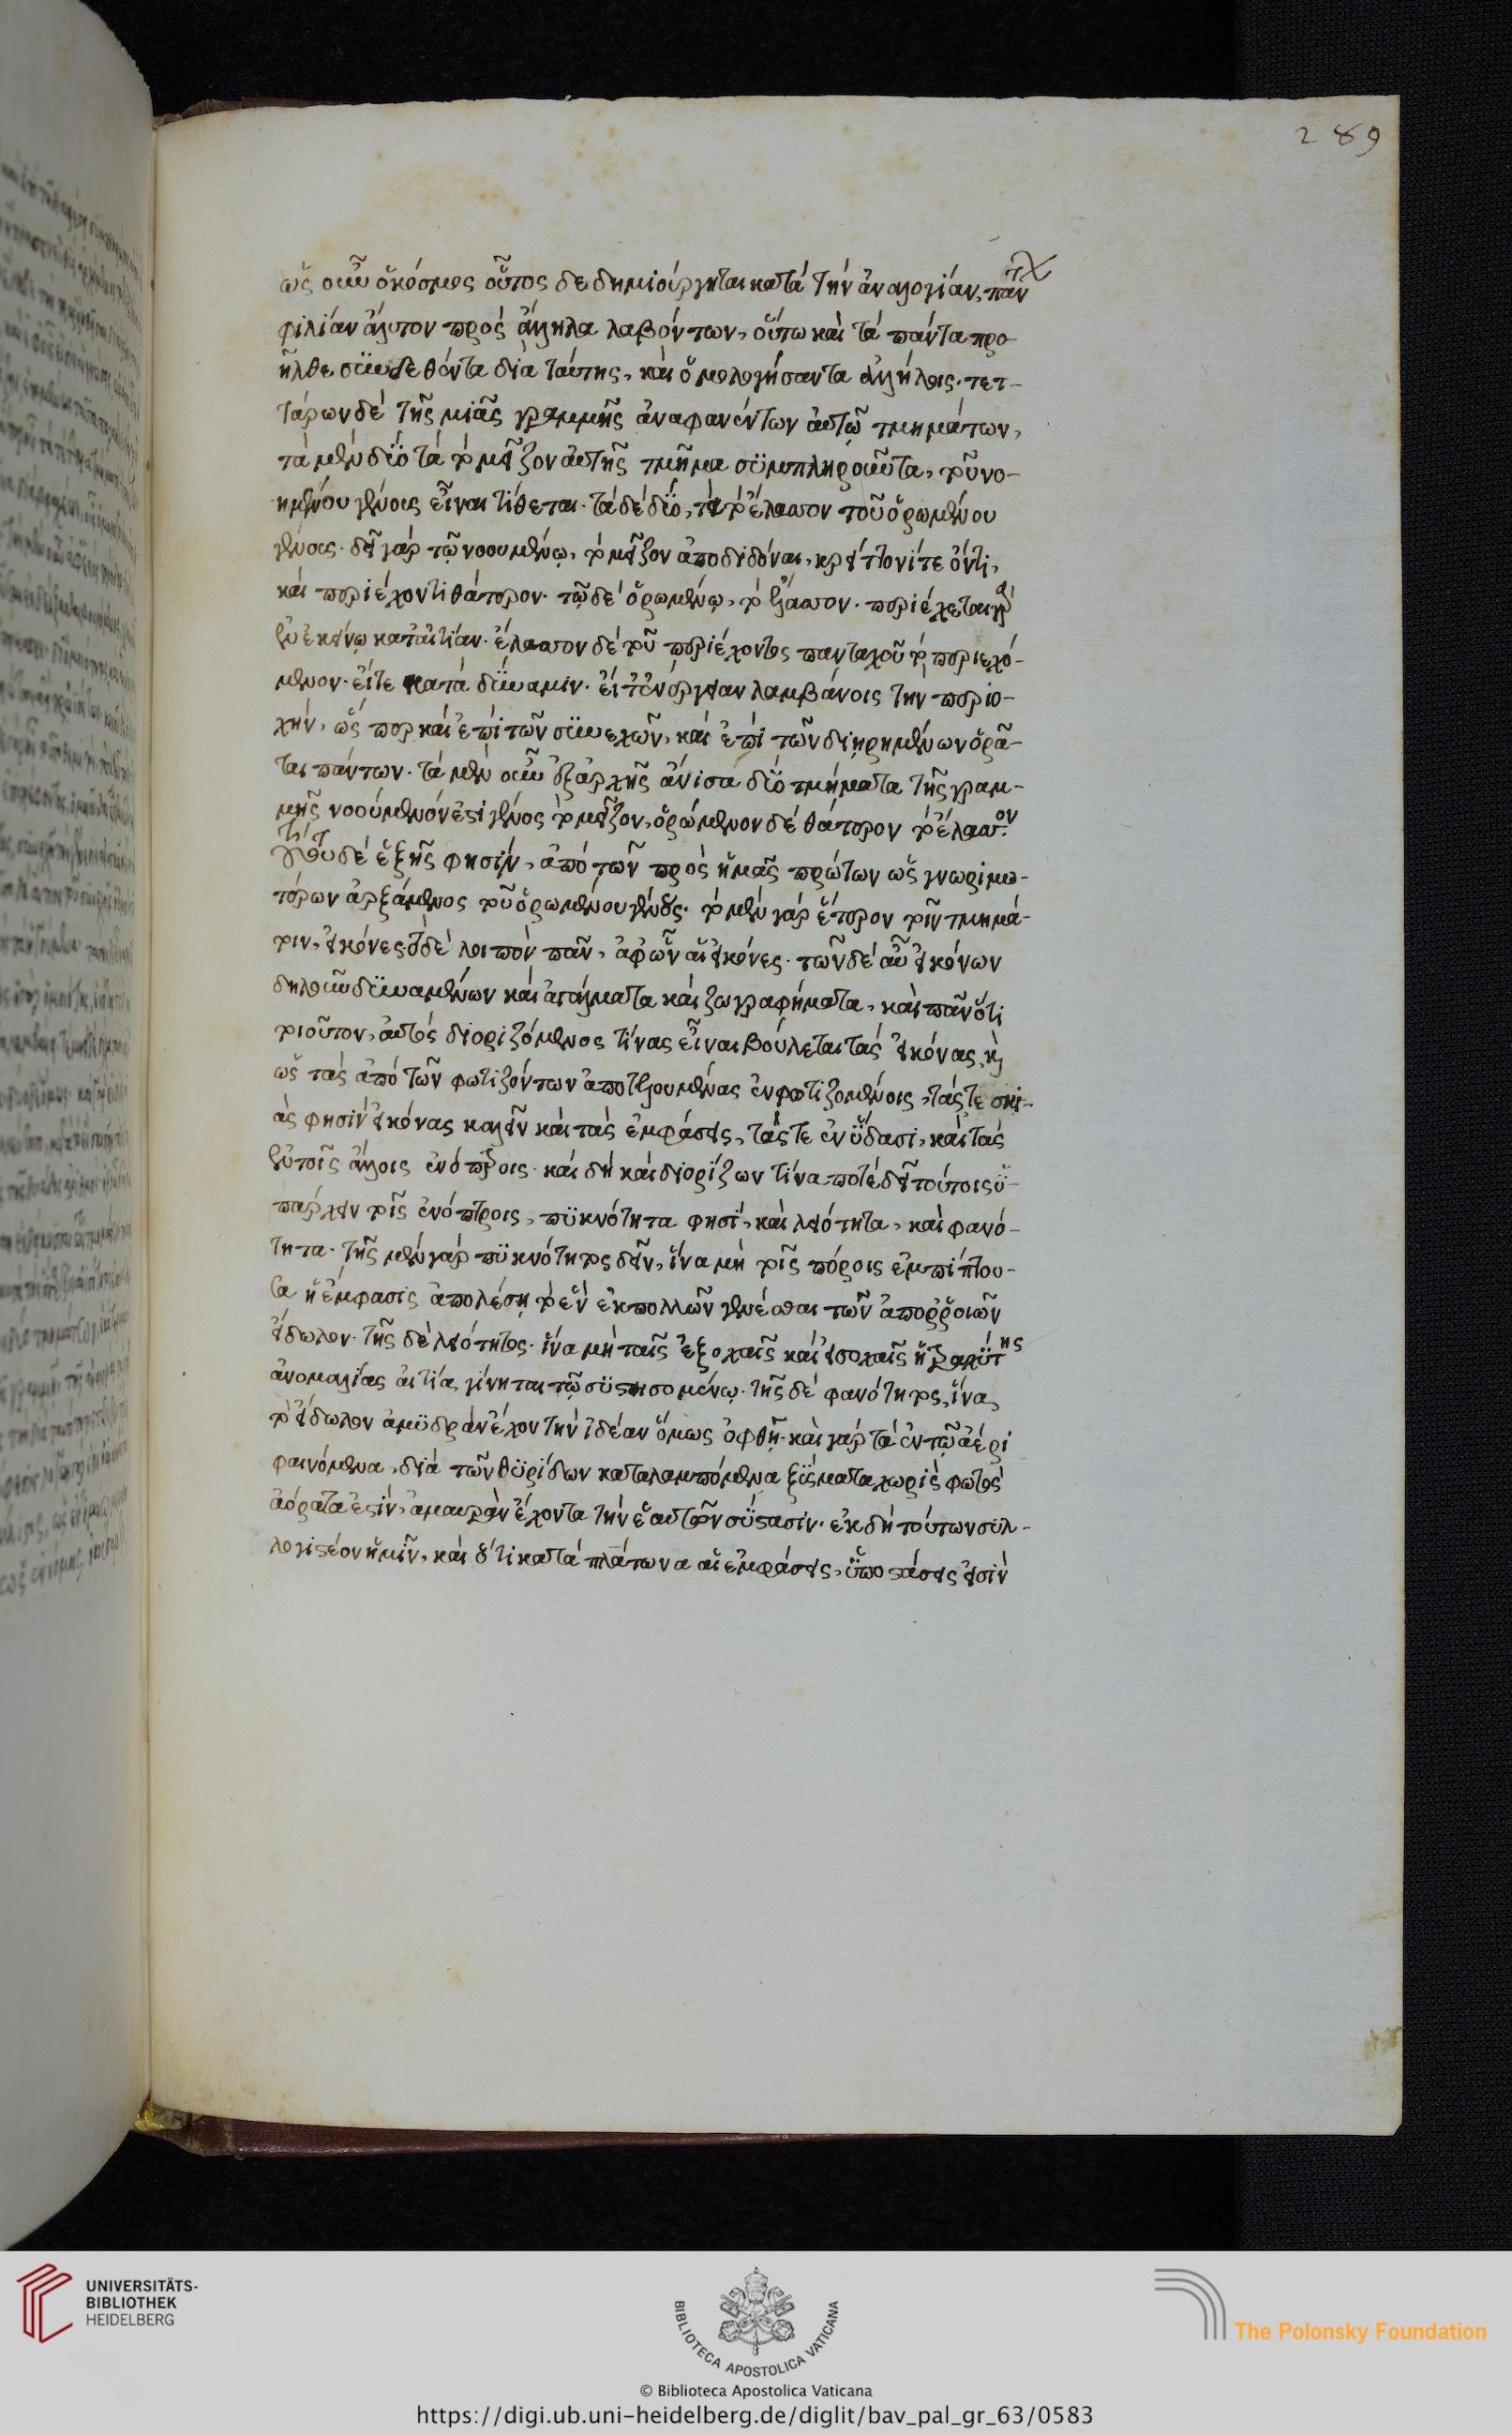 289
ὡς οὖν ὁ κόσμος οὗτος δεδημιούργηται κατὰ τὴν ἀναλογίαν, πάντων
φιλίαν ἄλυτον πρὸς ἄλληλα λαβόντων, οὕτω καὶ τὰ πάντα προ-
ῆλθε συνδεθέντα διὰ ταύτης, καὶ ὁμολογήσαντα ἀλλήλοις. τετ-
τάρων δὲ τῆς μιᾶς γραμμῆς ἀναφανέντων αὐτῷ τμημάτων,
τὰ μὲν δύο τὰ τὸ μεῖζον αὐτῆς τμῆμα συμπληροῦντα, τοῦ νο-
ουμένου γένους εἶναι τίθεται. τὰ δὲ δύο, τὰ τὸ ἔλαττον τοῦ ὁρωμένου
γένους. δεῖ γὰρ τῷ νοουμένῳ, τὸ μεῖζον ἀποδιδόναι, κρείττονί τε ὄντι,
καὶ περιέχοντι θάτερον. τῷ δὲ ὁρωμένῳ, τὸ ἔλαττον. περιέχεται γὰρ
ἐν ἐκείνῳ κατ' αἰτίαν. ἔλαττον δὲ τοῦ περιέχοντος πανταχοῦ τὸ περιεχό-
μενον. εἴτε κατὰ δύναμιν. εἴτ' ἐνέργειαν λαμβάνοις τὴν περιο-
χὴν, ὥσπερ καὶ ἐπὶ τῶν συνεχῶν, καὶ ἐπὶ τῶν διηρημένων ὁρᾶ-
ται πάντων. τὰ μὲν οὖν ἐξ ἀρχῆς ἄνισα δύο τμήματα τῆς γραμ-
μῆς νοούμενόν ἐστι γένος τὸ μεῖζον, ὁρώμενον δὲ θάτερον τὸ ἔλαττον.
δὲ ἑξῆς φησὶν, ἀπὸ τῶν πρὸς ἡμᾶς πρώτων ὡς γνωριμω-
τέρων ἀρξάμενος τοῦ ὁρωμένου γένους. τὸ μὲν γὰρ ἕτερον τοῖν τμημά-
τοιν, εἰκόνες. τὸ δὲ λοιπὸν πᾶν, ἀφ' ὧν αἱ εἰκόνες. τῶν δὲ αὖ εἰκόνων
δηλοῦν δυναμένων καὶ ἀγάλματα καὶ ζωγραφήματα, καὶ πᾶν ὅτι
τοιοῦτον, αὐτὸς διοριζόμενος τίνας εἶναι βούλεται τὰς εἰκόνας, καὶ
ὡς τὰς ἀπὸ τῶν φωτιζόντων ἀποτελουμένας ἐν φωτιζομένοις, τάς τε σκι-
άς φησὶν εἰκόνας καλεῖν καὶ τὰς ἐμφάσεις, τάς τε ἐν ὕδασι, καὶ τὰς
ἐν τοῖς ἄλλοις ἐνόπτροις. καὶ δὴ καὶ διορίζων τίνα ποτὲ δεῖ τούτοις ὑ-
πάρχειν τοῖς ἐνόπτροις, πυκνότητα φησὶ, καὶ λειότητα, καὶ φανό-
τητα. τῆς μὲν γὰρ πυκνότητος δεῖν, ἵνα μὴ τοῖς πόροις ἐμπίπτου-
σα ἡ ἔμφασις ἀπολέσῃ τὸ ἓν ἐκ πολλῶν γενέσθαι τῶν ἀπορροιῶν
εἴδωλον. τῆς δὲ λειότητος. ἵνα μὴ ταῖς ἐξοχαῖς καὶ εἰσοχαῖς ἡ τραχύτης
ἀνομαλίας αἰτία γίνηται τῷ συστησομένῳ. τῆς δὲ φανότητος, ἵνα
τὸ εἴδωλον ἀμυδρὰν ἔχον τὴν ἰδέαν ὅμως ὀφθῇ. καὶ γὰρ τὰ ἐν τῷ ἀέρι
φαινόμενα, διὰ τῶν θυρίδων καταλαμπόμενα ξύσματα χωρὶς φωτὸς
ἀόρατα ἐστὶν, ἀμαυρὰν ἔχοντα τὴν ἑαυτῶν σύστασιν. ἐκ δὴ τούτων συλ-
λογιστέον ἡμῖν, καὶ ὅτι κατὰ πλάτωνα αἱ ἐμφάσεις, ὑποστάσεις εἰσὶν
UNIVERSITÄTS-
BIBLIOTHEK
HEIDELBERG
BIBLIOTECA APOSTOLICA VATICANA
© Biblioteca Apostolica Vaticana
The Polonsky Foundation
https://digi.ub.uni-heidelberg.de/diglit/bav_pal_gr_63/0583